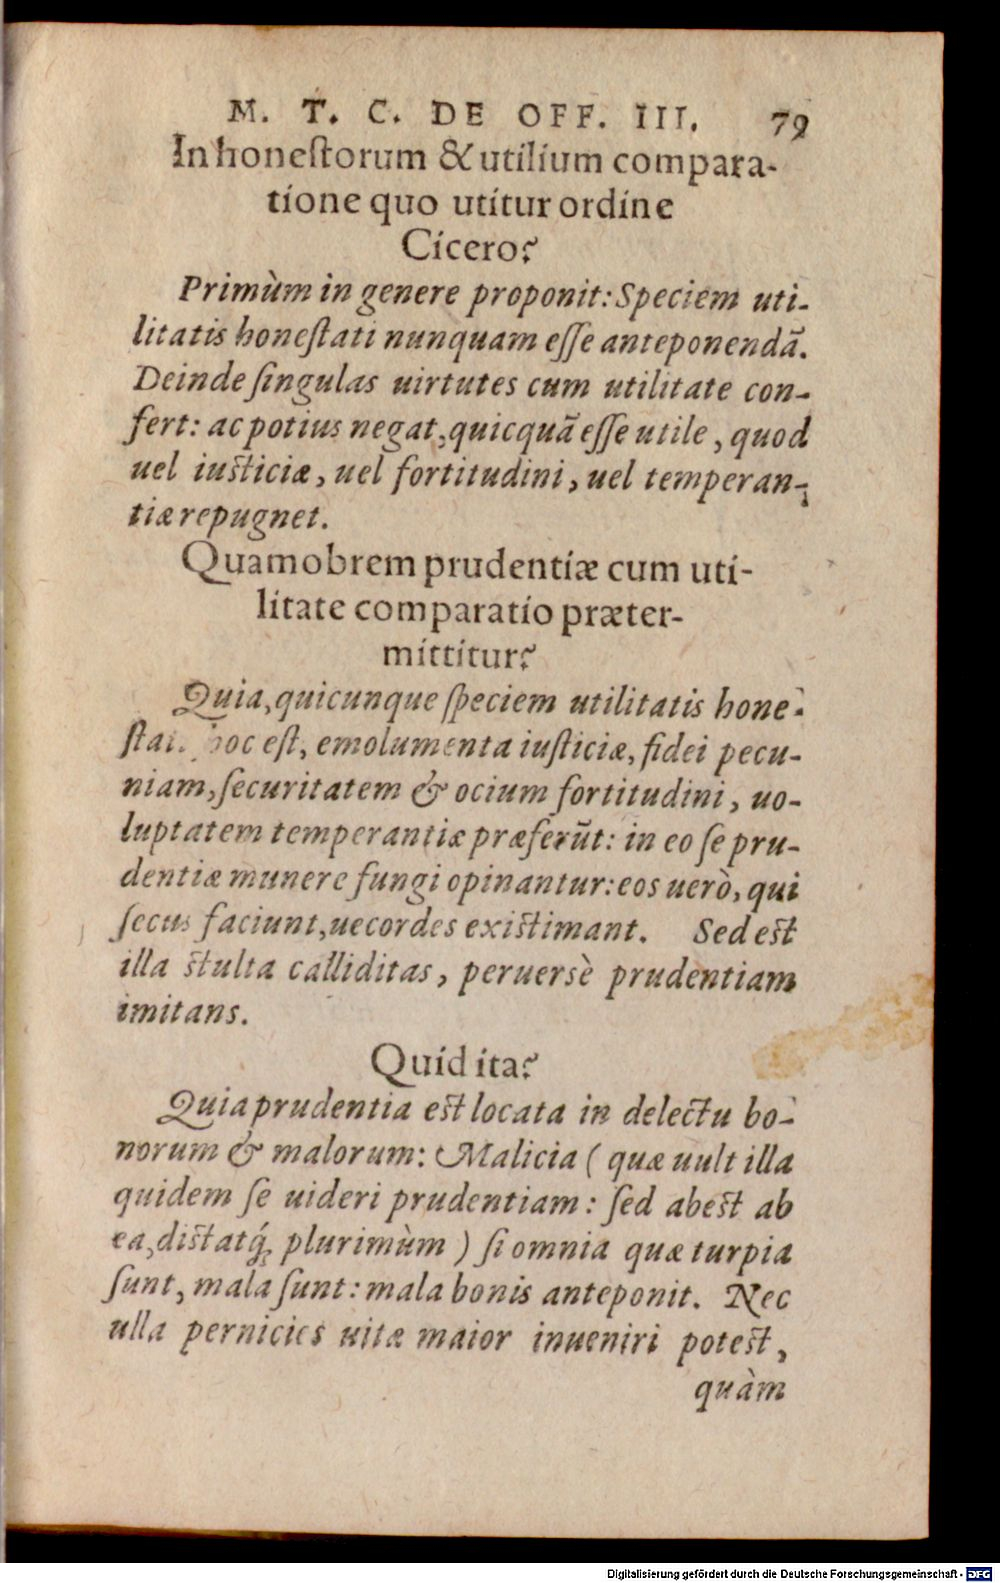 M. T. C. DE OFF. III. 79
In honeſtorum & utilium compara-
tione quo utitur ordine
Cicero?
Primùm in genere proponit: Speciem uti-
litatis honeſtati nunquam eſſe anteponendã.
Deinde ſingulas uirtutes cum utilitate con-
fert: ac potius negat, quicquã eſſe utile, quod
uel iuſticiæ, uel fortitudini, uel temperan-
tiæ repugnet.
Quamobrem prudentiæ cum uti-
litate comparatio præter-
mittitur?
Quia, quicunque ſpeciem utilitatis hone-
hoc eſt, emolumenta iuſticiæ, fidei pecu-
niam, ſecuritatem & ocium fortitudini, uo-
luptatem temperantiæ præferũt: in eo ſe pru-
dentiæ munere fungi opinantur: eos uerò, qui
ſecus faciunt, uecordes exiſtimant. Sed eſt
illa ſtulta calliditas, peruersè prudentiam
imitans.
Quid ita?
Quia prudentia eſt locata in delectu bo-
norum & malorum: Malicia ( quæ uult illa
quidem ſe uideri prudentiam: ſed abeſt ab
ea, diſtatq́; plurimùm ) ſi omnia quæ turpia
ſunt, mala ſunt: mala bonis anteponit. Nec
ulla pernicies uitæ maior inueniri poteſt,
quàm
Digitalisierung gefördert durch die Deutsche Forschungsgemeinschaft - DFG